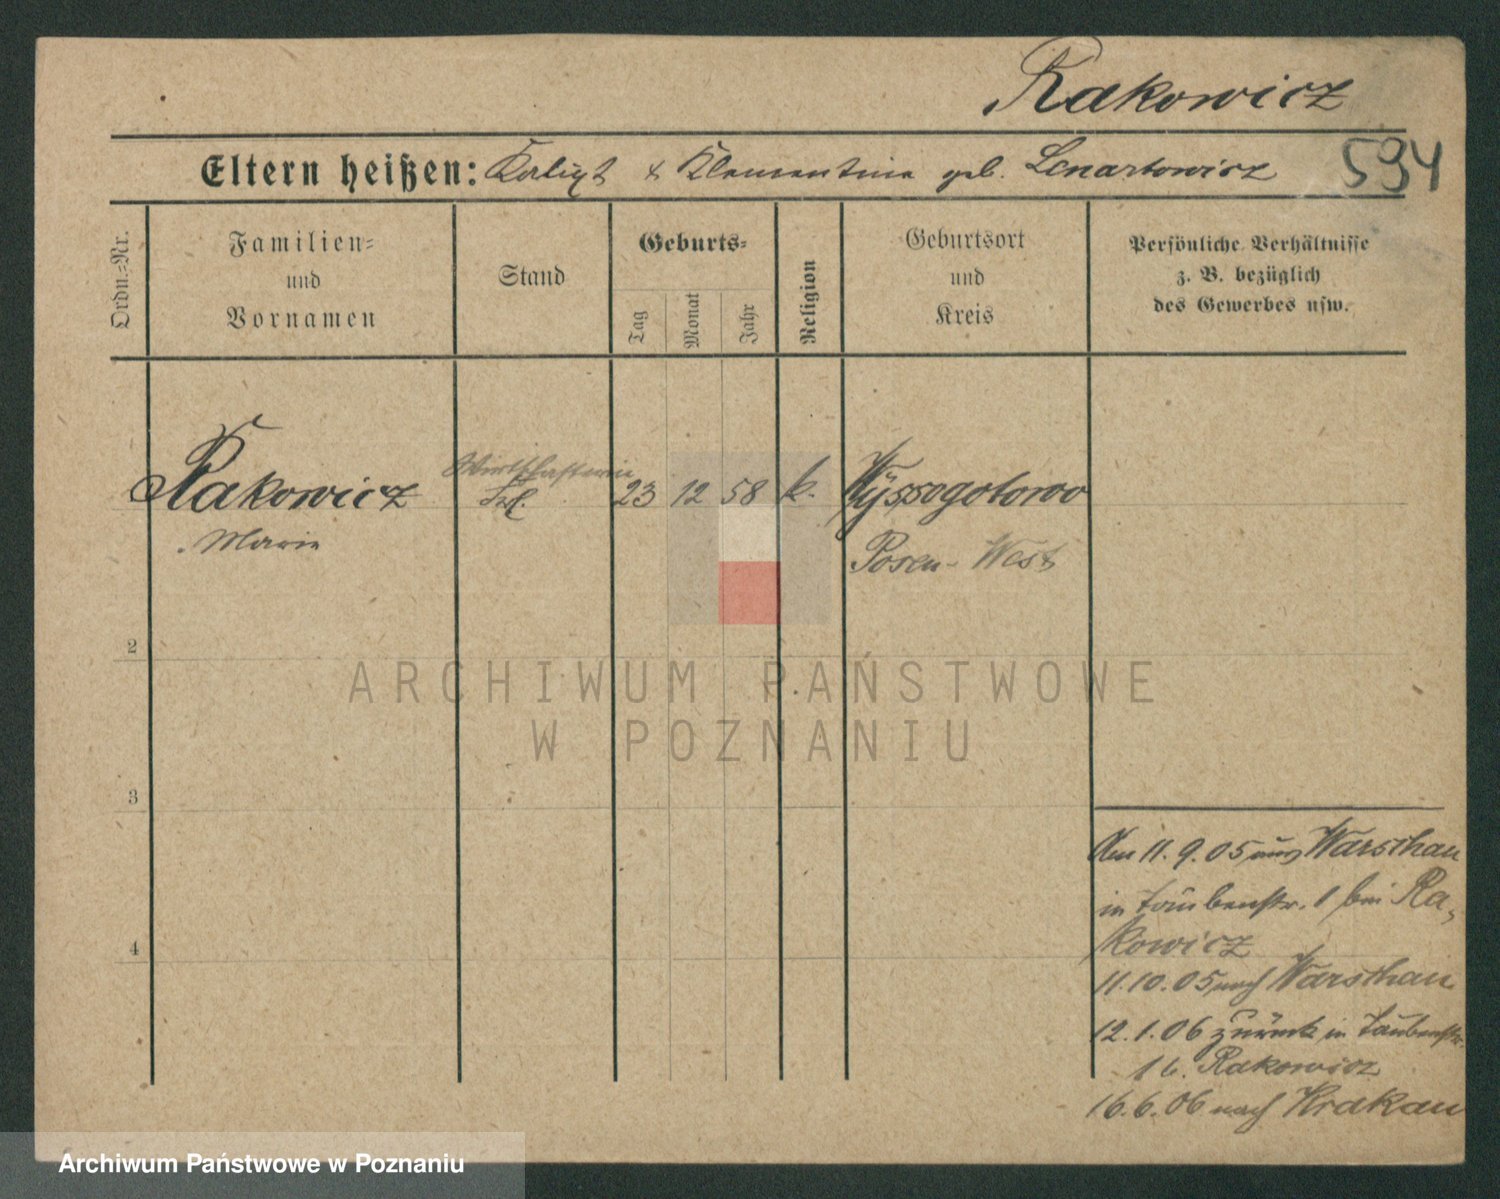 Rakowicz
594
Eltern heißen: & Klementine geb. Lenartowicz
Ordn.-Nr.
Familien-
und
Vornamen
Stand
Geburts-
Tag
Monat
Jahr
Religion
Geburtsort
und
Kreis
Persönliche Verhältnisse
z. B. bezüglich
des Gewerbes usw.
Wirtschafterin
Rakowicz Frl. 23 12 58 k. Wyssogotowo
Marie
Posen-West
2
3
4
Am 11.9.05 aus Warschau
in Taubenstr. 1 bei Ra-
kowicz
11.10.05 nach Warschau
12.1.06 zurück in Taubenstr.
1 b. Rakowicz
16.6.06 nach Krakau
ARCHIWUM PAŃSTWOWE
W POZNANIU
Archiwum Państwowe w Poznaniu